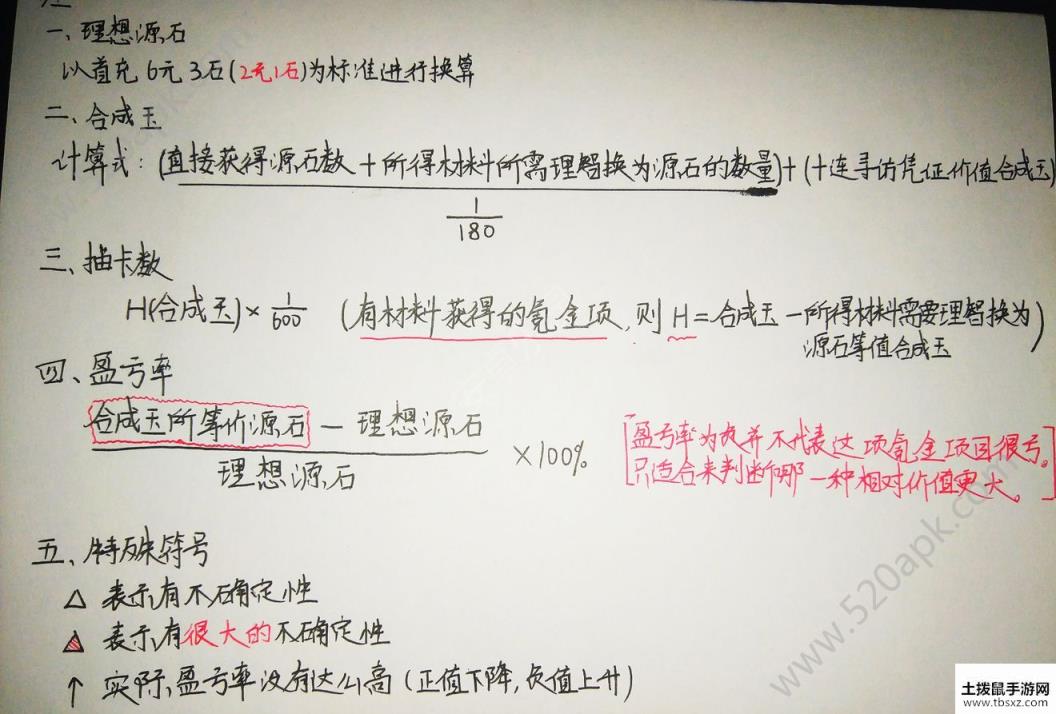 一、理想源石
以首充6元3石(2元1石)为标准进行换算
二、合成玉
计算式：(直接获得源石数+所得材料所需理智换为源石的数量)+(十连寻访凭证价值合成玉)
1
180
三、抽卡数
H(合成玉)×1/600 (有材料获得的氪金项,则H=合成玉-所得材料需要理智换为
源石等值合成玉)
四、盈亏率
合成玉所等价源石-理想源石
理想源石
×100%
[盈亏率为负并不代表这项氪金项目很亏。
只适合来判断哪一种相对价值更大。]
五、特殊符号
△ 表示有不确定性
▲ 表示有很大的不确定性
↑ 实际盈亏率没有达么高(正值下降,负值上升)
www.520apk.com
土拨鼠手游网
www.tbsxz.com